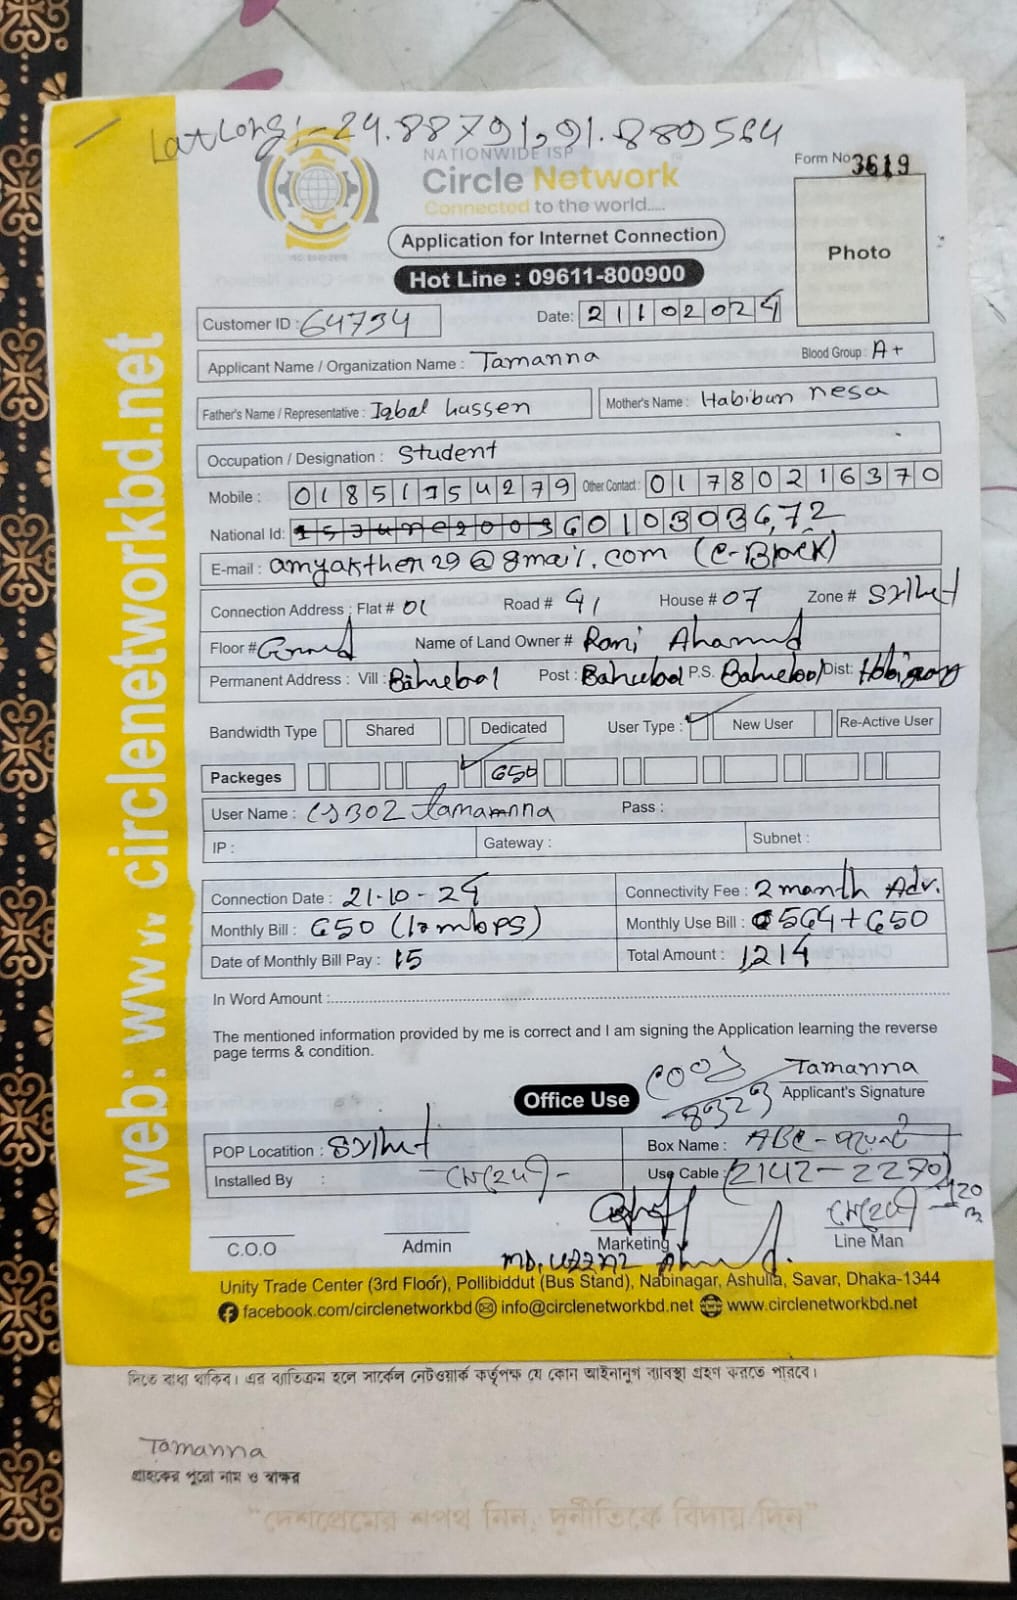 Lat Long:- 24.88791,91.889564
NATIONWIDE ISP
Circle Network
Connected to the world.....
Form No 3619
Photo
Application for Internet Connection
Hot Line : 09611-800900
Customer ID : 64734
Date: 21102024
Applicant Name / Organization Name : Tamanna Blood Group : A+
Father's Name / Representative : Iqbal hussen Mother's Name : Habibun nesa
Occupation / Designation : Student
Mobile : 01851754279 Other Contact : 01780216370
National Id: 6010303672
E-mail : amyakther29@gmail.com (C-Block)
Connection Address : Flat # 01 Road # 41 House # 07 Zone # Sylhet
Floor # Ground Name of Land Owner # Roni Ahamed
Permanent Address : Vill : Bahubal Post : Bahubal P.S. Bahubal Dist: Hobigonj
Bandwidth Type Shared Dedicated User Type : New User Re-Active User
Packeges 650
User Name : Tamannna Pass :
IP : Gateway : Subnet :
Connection Date : 21-10-24 Connectivity Fee : 2 month Adv.
Monthly Bill : 650 (10mbps) Monthly Use Bill : 564+650
Date of Monthly Bill Pay : 15 Total Amount : 1,214
In Word Amount :
The mentioned information provided by me is correct and I am signing the Application learning the reverse
page terms & condition.
Tamanna
Applicant's Signature
Office Use
POP Locatition : Sylhet Box Name : ABC -
Installed By : Use Cable : (2142-2270)
C.O.O Admin Marketing Line Man
Unity Trade Center (3rd Floor), Pollibiddut (Bus Stand), Nabinagar, Ashulia, Savar, Dhaka-1344
facebook.com/circlenetworkbd info@circlenetworkbd.net www.circlenetworkbd.net
web: www.circlenetworkbd.net
দিতে বাধ্য থাকিব। এর ব্যতিক্রম হলে সার্কেল নেটওয়ার্ক কর্তৃপক্ষ যে কোন আইনানুগ ব্যবস্থা গ্রহণ করতে পারবে।
Tamanna
গ্রাহকের পুরো নাম ও স্বাক্ষর
"দেশপ্রেমের শপথ নিন, দুর্নীতিকে বিদায় দিন"